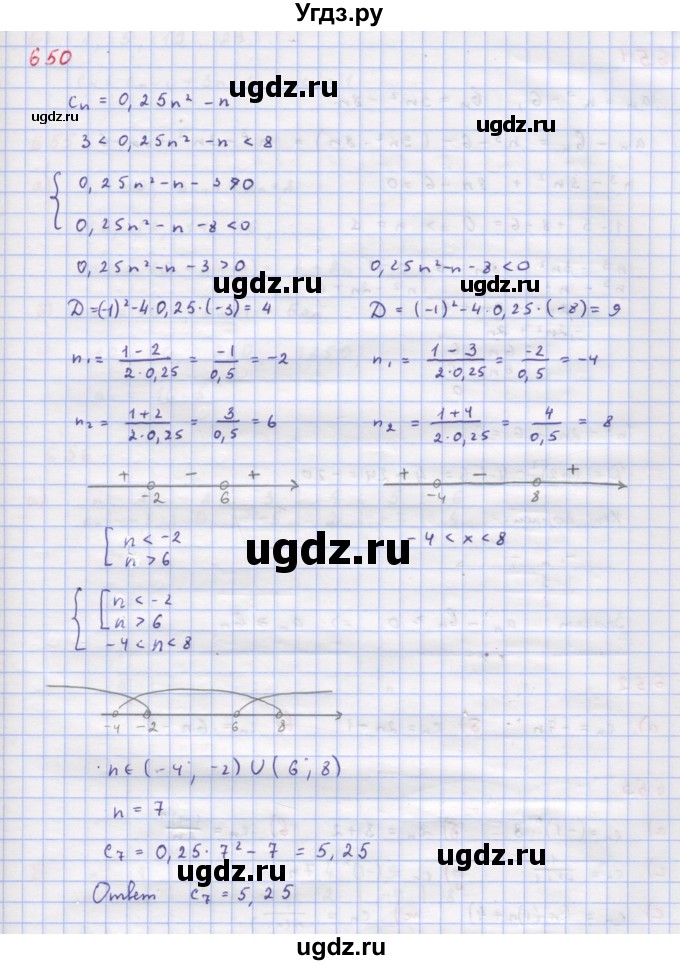 Угдз.ру
650
ugdz.ru
cₙ = 0,25n² - n
ugdz.ru
ugdz.ru
3 < 0,25n² - n < 8
{ 0,25n² - n - 3 > 0
0,25n² - n - 8 < 0
ugdz.ru
0,25n² - n - 3 > 0    0,25n² - n - 8 < 0
ugdz.ru    ugdz.ru
D = (-1)² - 4·0,25·(-3) = 4    D = (-1)² - 4·0,25·(-8) = 9
n₁ = (1-2)/(2·0,25) = -1/0,5 = -2    n₁ = (1-3)/(2·0,25) = -2/0,5 = -4
ugdz.ru
n₂ = (1+2)/(2·0,25) = 3/0,5 = 6    n₂ = (1+4)/(2·0,25) = 4/0,5 = 8
+ - +    + - +
-2 6    -4 8
[ n < -2    -4 < x < 8
n > 6
ugdz.ru
{ [ n < -2
n > 6
-4 < n < 8
ugdz.ru    ugdz.ru
-4 -2 6 8
n ∈ (-4; -2) ∪ (6; 8)
ugdz.ru
n = 7
c₇ = 0,25·7² - 7 = 5,25
ugdz.ru    ugdz.ru
Ответ c₇ = 5,25
ugdz.ru